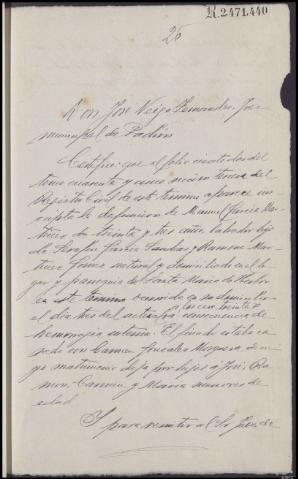 R.2471.440
25
Don José Veiga Fernandez, Juez
municipal de Padrón
Certifico: que al folio ciento dos del
tomo cuarenta y cinco sección tercera del
Registro Civil de este termino aparece ins
cripta la defunción de Manuel Garcia Mar
tinez de treinta y tres años labrador hijo
de Serafin Garcia Sanchez y Ramona Mar
tinez natural y domiciliado en el lu
gar y parroquia de Santa Maria de
en este termino ocurrida en su domicilio
el dia tres del actual a consecuencia de
hemorragia interna. El finado estaba ca
sado con Carmen Gonzalez de cu
yo matrimonio deja por hijos a José, Ra
mon, Carmen y Maria menores de
edad.
Y para remitir al Sr. Juez de